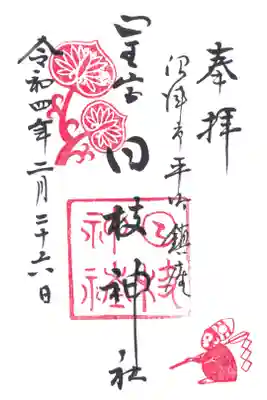 奉拝
沼津市平町鎮座
山王宮日枝神社
日枝神社
令和四年二月二十六日